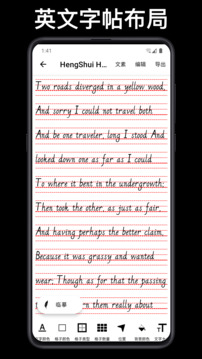 英文字帖布局
1:41
HengShui H... 文素 编辑 导出
Two roads diverged in a yellow wood,
And sorry I could not travel both
And be one traveler, long I stood And
looked down one as far as I could
To where it bent in the undergrowth;
Then took the other, as just as fair,
And having perhaps the better claim,
Because it was grassy and wanted
wear; Though as for that the passing
them really about
临摹
格子颜色 格子类型 格子数量 位置 背景颜色